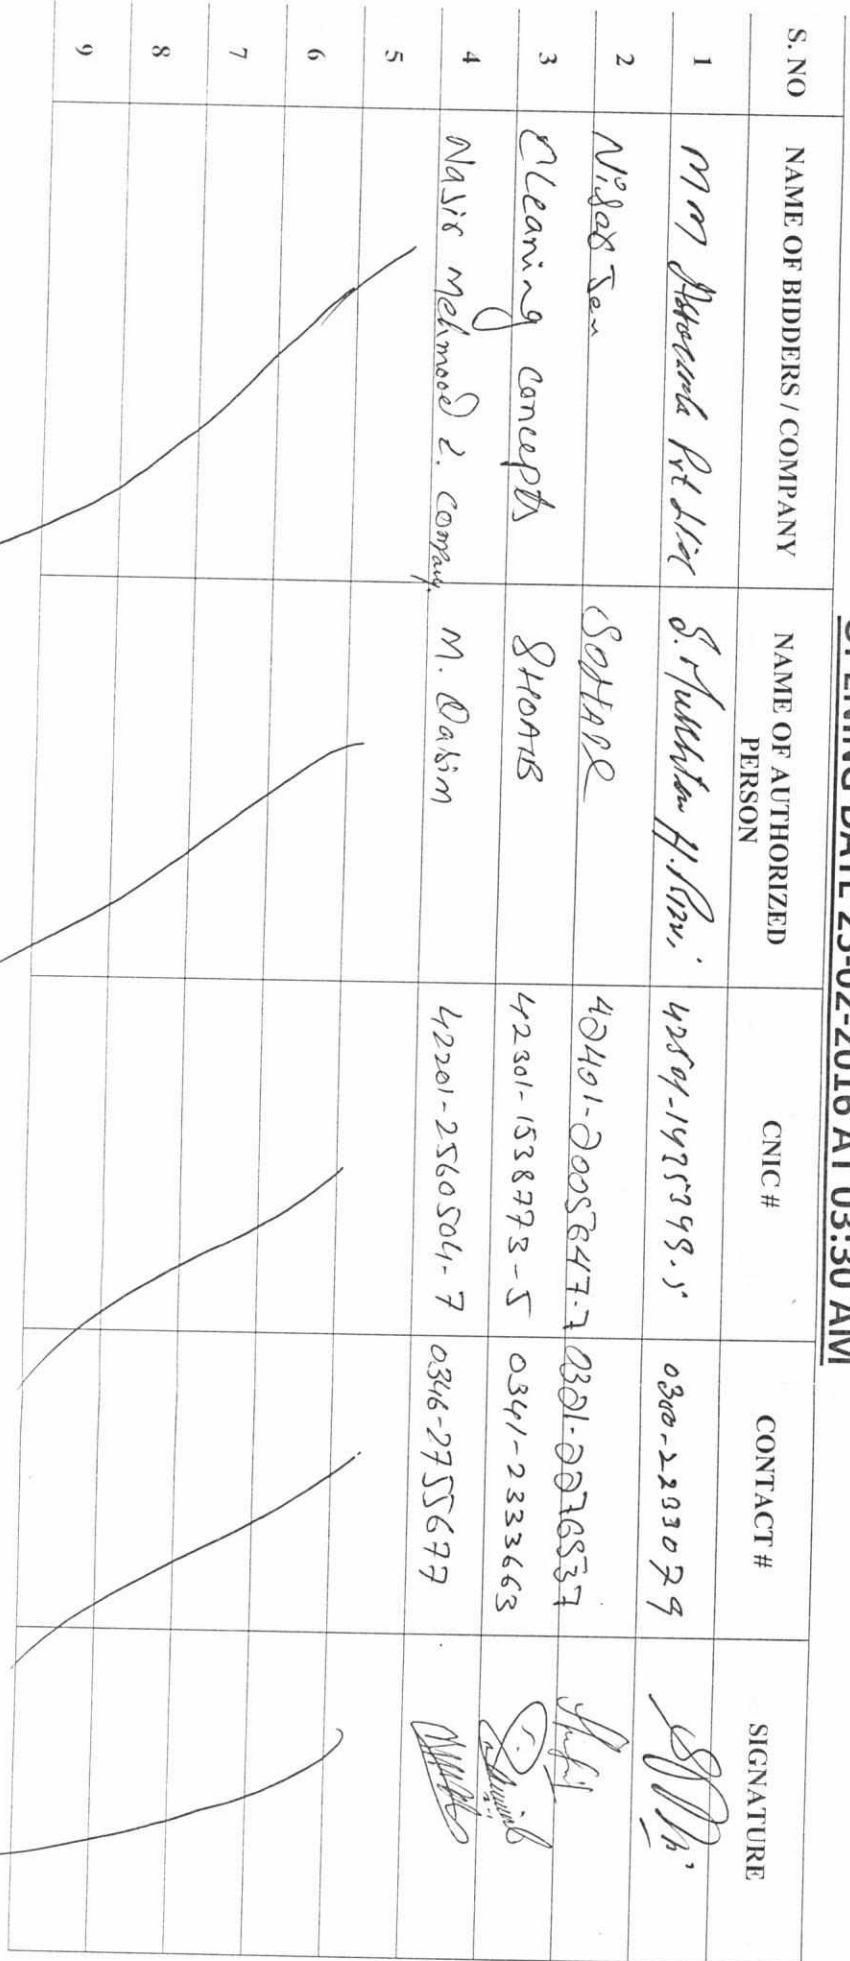 OPENING DATE 25-02-2016 AT 03:30 AM
S. NO NAME OF BIDDERS / COMPANY NAME OF AUTHORIZED PERSON CNIC # CONTACT # SIGNATURE
1 M M Pvt H. Rizvi 0300-2233079
2 Nisar SOHAIL 42401-2005647-7 0321-2276537
3 Cleaning concepts SHOAIB 42301-1538773-5 0341-2333663
4 Nasir Mehmood & Company. M. Qasim 42201-2560504-7 0346-2755677
5
6
7
8
9